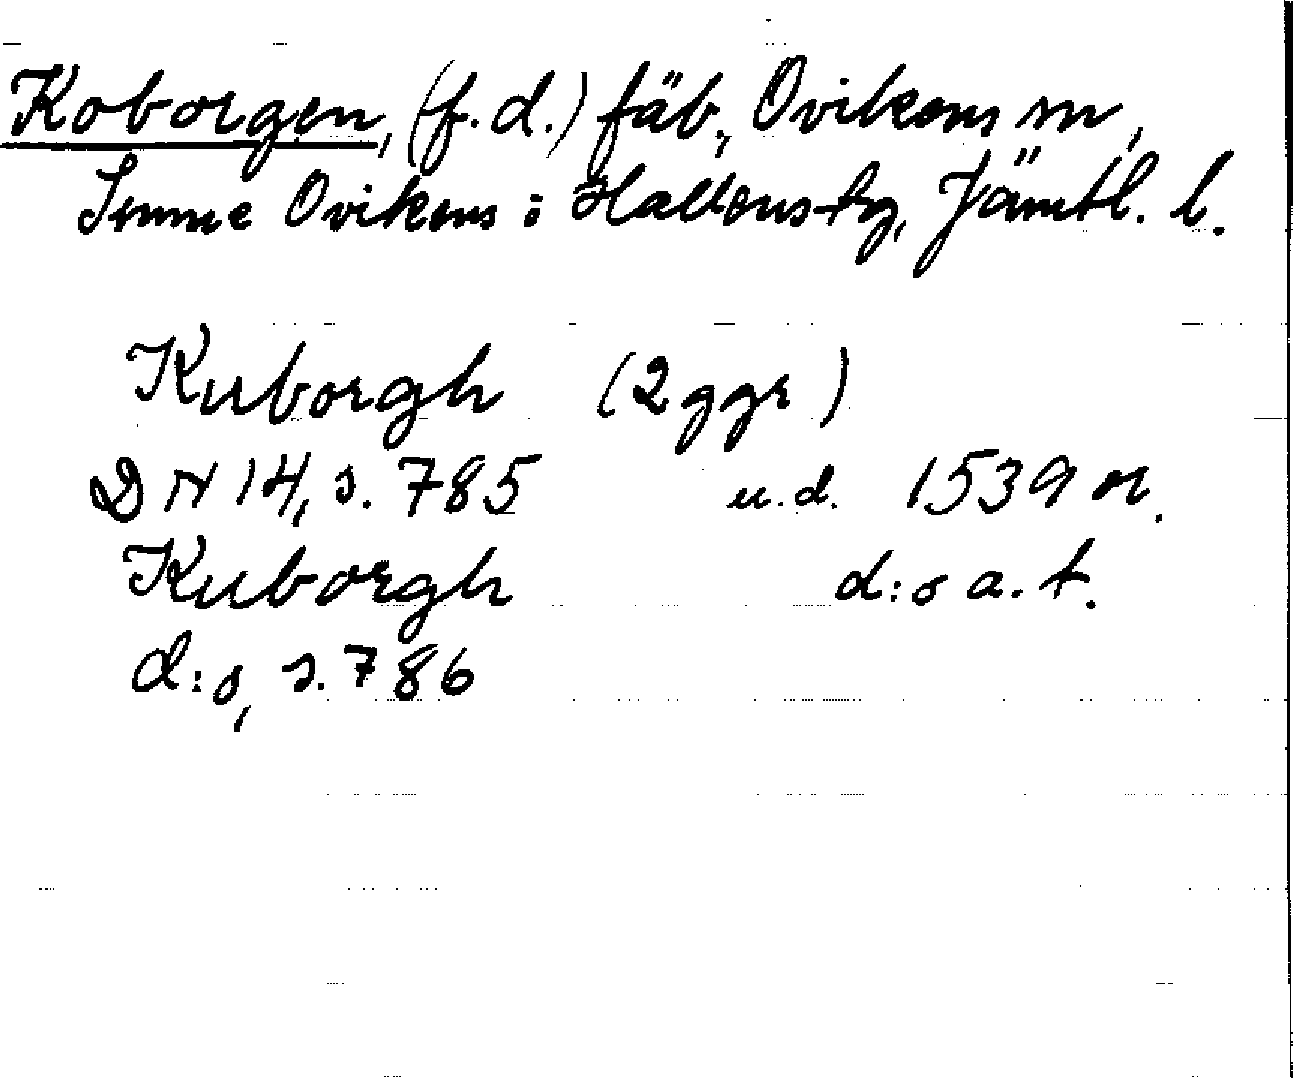 Koborgen, (f.d.) fäb., Ovikens sn,
Sunne Ovikens o Hallens tg, Jämtl. l.
Kuborgh (2 ggr)
DN 14, s. 785 u.d. 1539 or.
Kuborgh d:o a.t.
d:o, s. 786